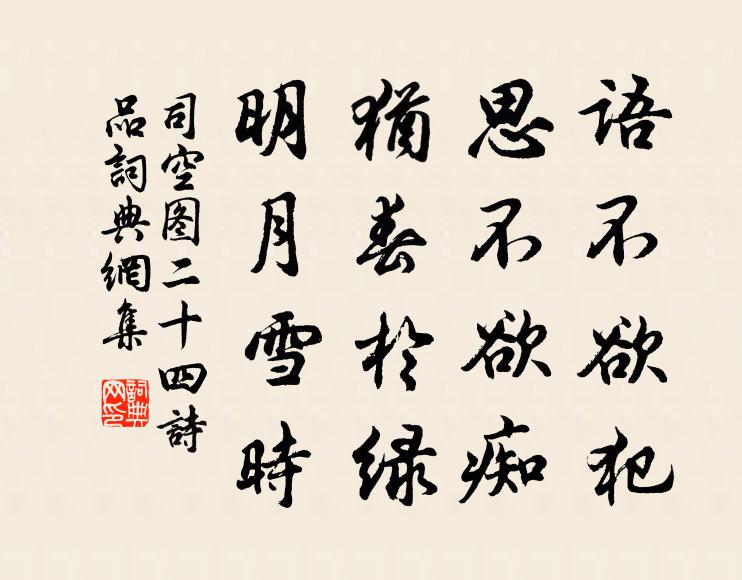 语不欲犯
思不欲痴
猶春於绿
明月雪時
司空图二十四詩
品詞典網集
詞典网印